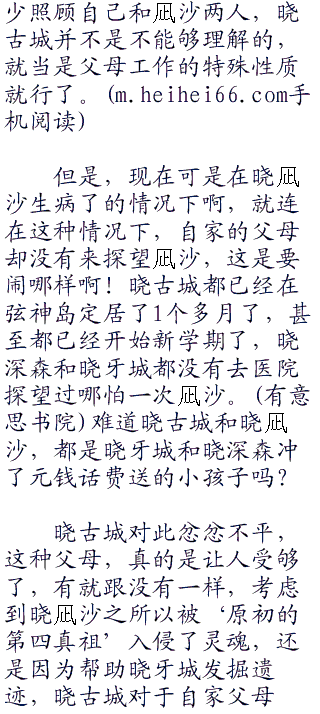 少照顾自己和凪沙两人，晓
古城并不是不能够理解的，
就当是父母工作的特殊性质
就行了。(m.heihei66.com手
机阅读)
但是，现在可是在晓凪
沙生病了的情况下啊，就连
在这种情况下，自家的父母
却没有来探望凪沙，这是要
闹哪样啊！晓古城都已经在
弦神岛定居了1个多月了，甚
至都已经开始新学期了，晓
深森和晓牙城都没有去医院
探望过哪怕一次凪沙。(有意
思书院)难道晓古城和晓凪
沙，都是晓牙城和晓深森冲
了元钱话费送的小孩子吗？
晓古城对此忿忿不平，
这种父母，真的是让人受够
了，有就跟没有一样，考虑
到晓凪沙之所以被‘原初的
第四真祖’入侵了灵魂，还
是因为帮助晓牙城发掘遗
迹，晓古城对于自家父母